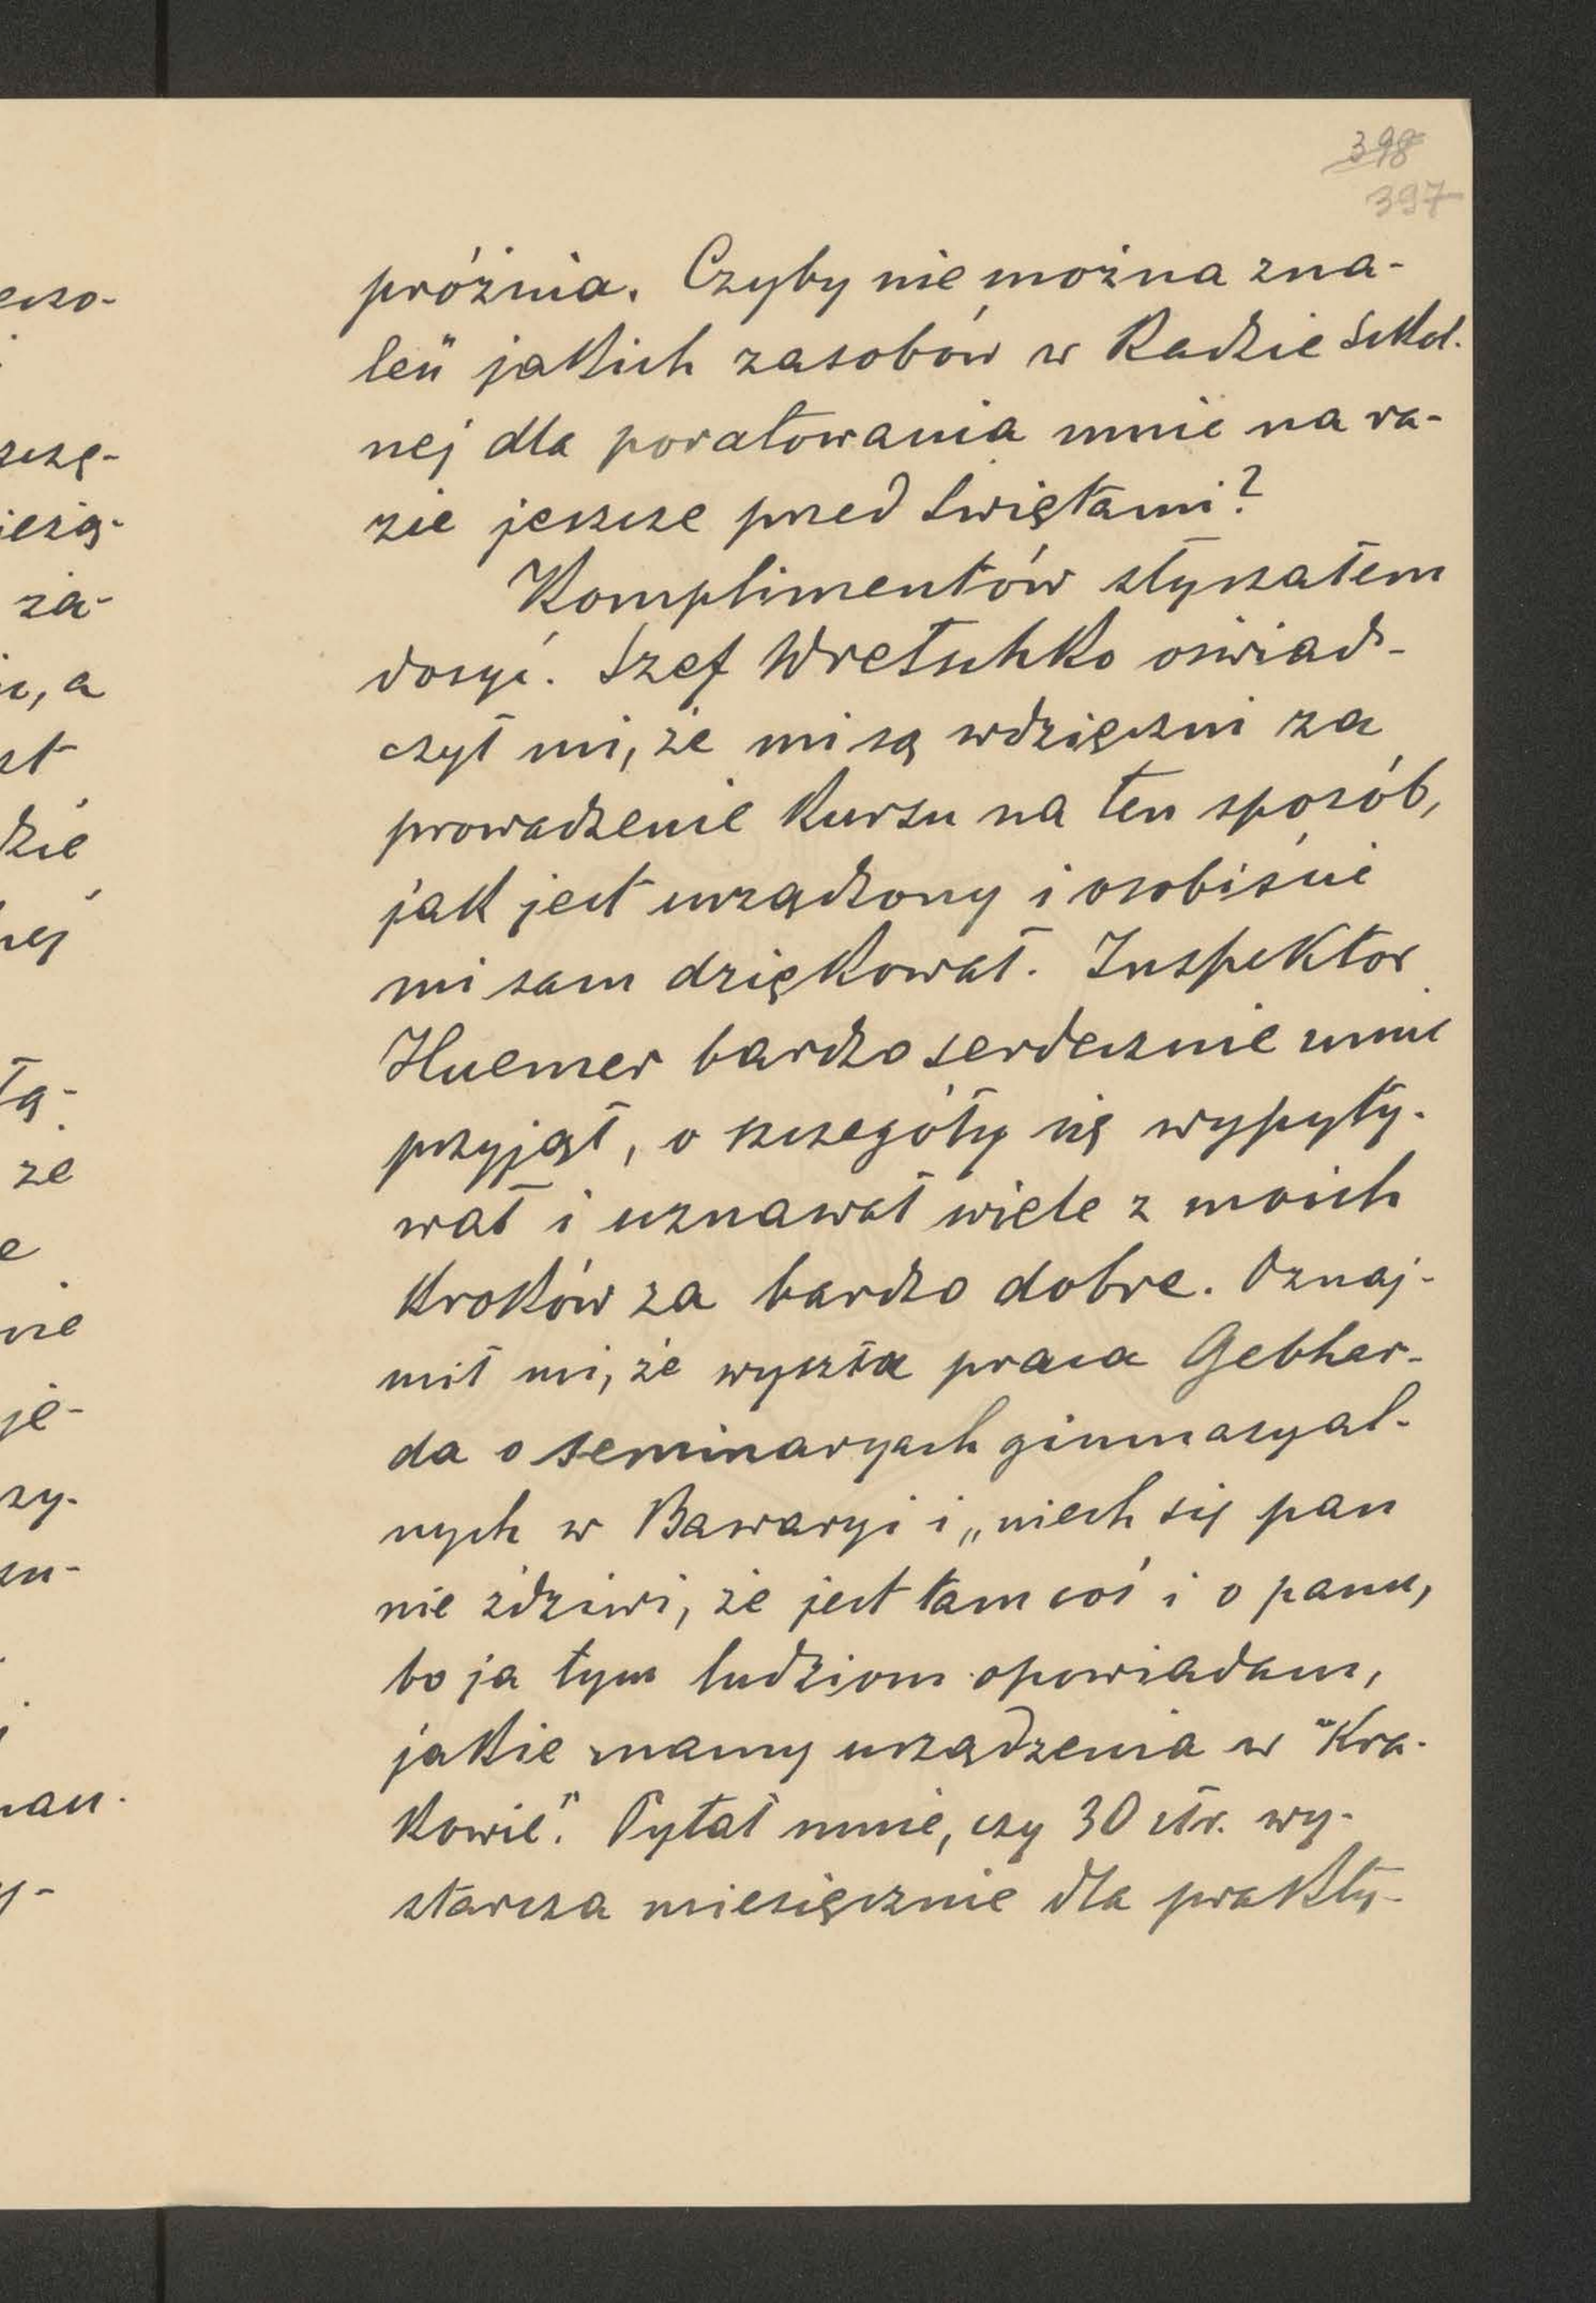 398
397
próżnia. Czyby nie można zna-
leźć jakich zasobów w Radzie Szkol.
nej dla poratowania mnie na ra-
zie jeszcze przed świętami?
Komplimentów słyszałem
dosyć. Szef Wretschko oświad-
czył mi, że mi są wdzięczni za
prowadzenie kursu na ten sposób,
jak jest urządzony i osobiście
mi sam dziękował. Inspektor
Huemer bardzo serdecznie mnie
przyjął, o szczegóły się wypyty-
wał i uznawał wiele z moich
kroków za bardzo dobre. Oznaj-
mił mi, że wyszła praca Gebhar-
da o seminaryach gimnazyal-
nych w Bawaryi i „niech się pan
nie zdziwi, że jest tam coś i o panu,
bo ja tym ludziom opowiadam,
jakie mamy urządzenia w Kra-
kowie". Pytał mnie, czy 30 złr. wy-
starcza miesięcznie dla prakty-